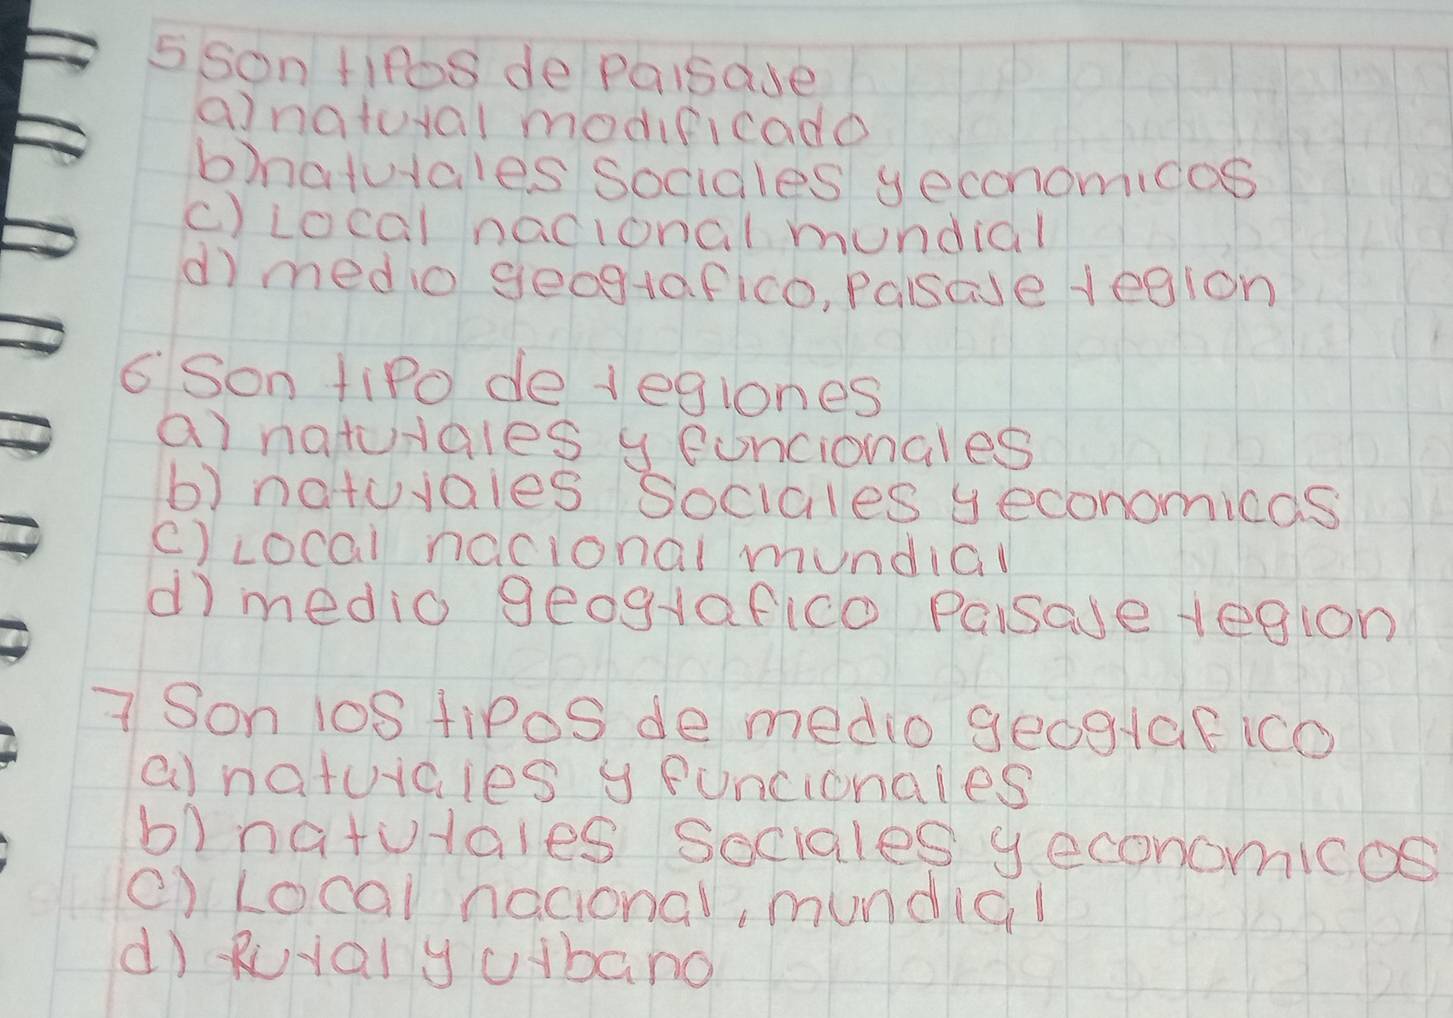 5 Son tipos de paisaje
a) natural modificado
b) naturales sociales y economicos
c) Local nacional mundial
d) medio geografico, paisaje region
6 Son tipo de regiones
a) naturales y funcionales
b) naturales sociales y economicas
c) Local nacional mundial
d) medio geografico paisaje region
7 Son los tipos de medio geografico
a) naturales y funcionales
b) naturales sociales y economicos
c) Local nacional, mundial
d) Rural y urbano